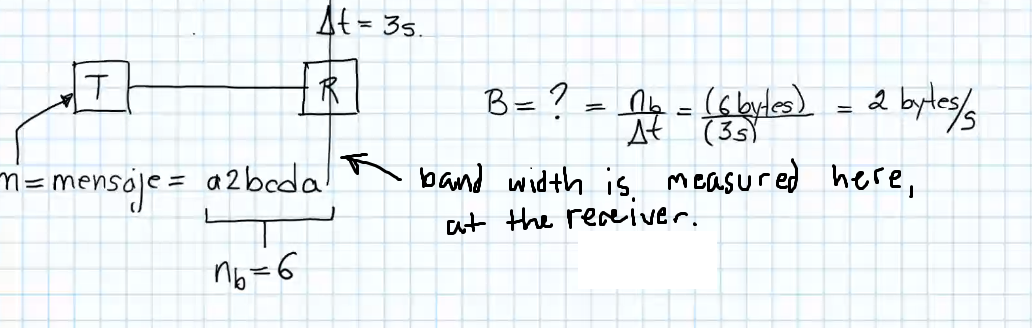 Δt = 3s.
T R
B = ? = nb/Δt = (6 bytes)/(3s) = 2 bytes/s
m = mensaje = a2bcda
band width is measured here,
at the receiver.
nb = 6